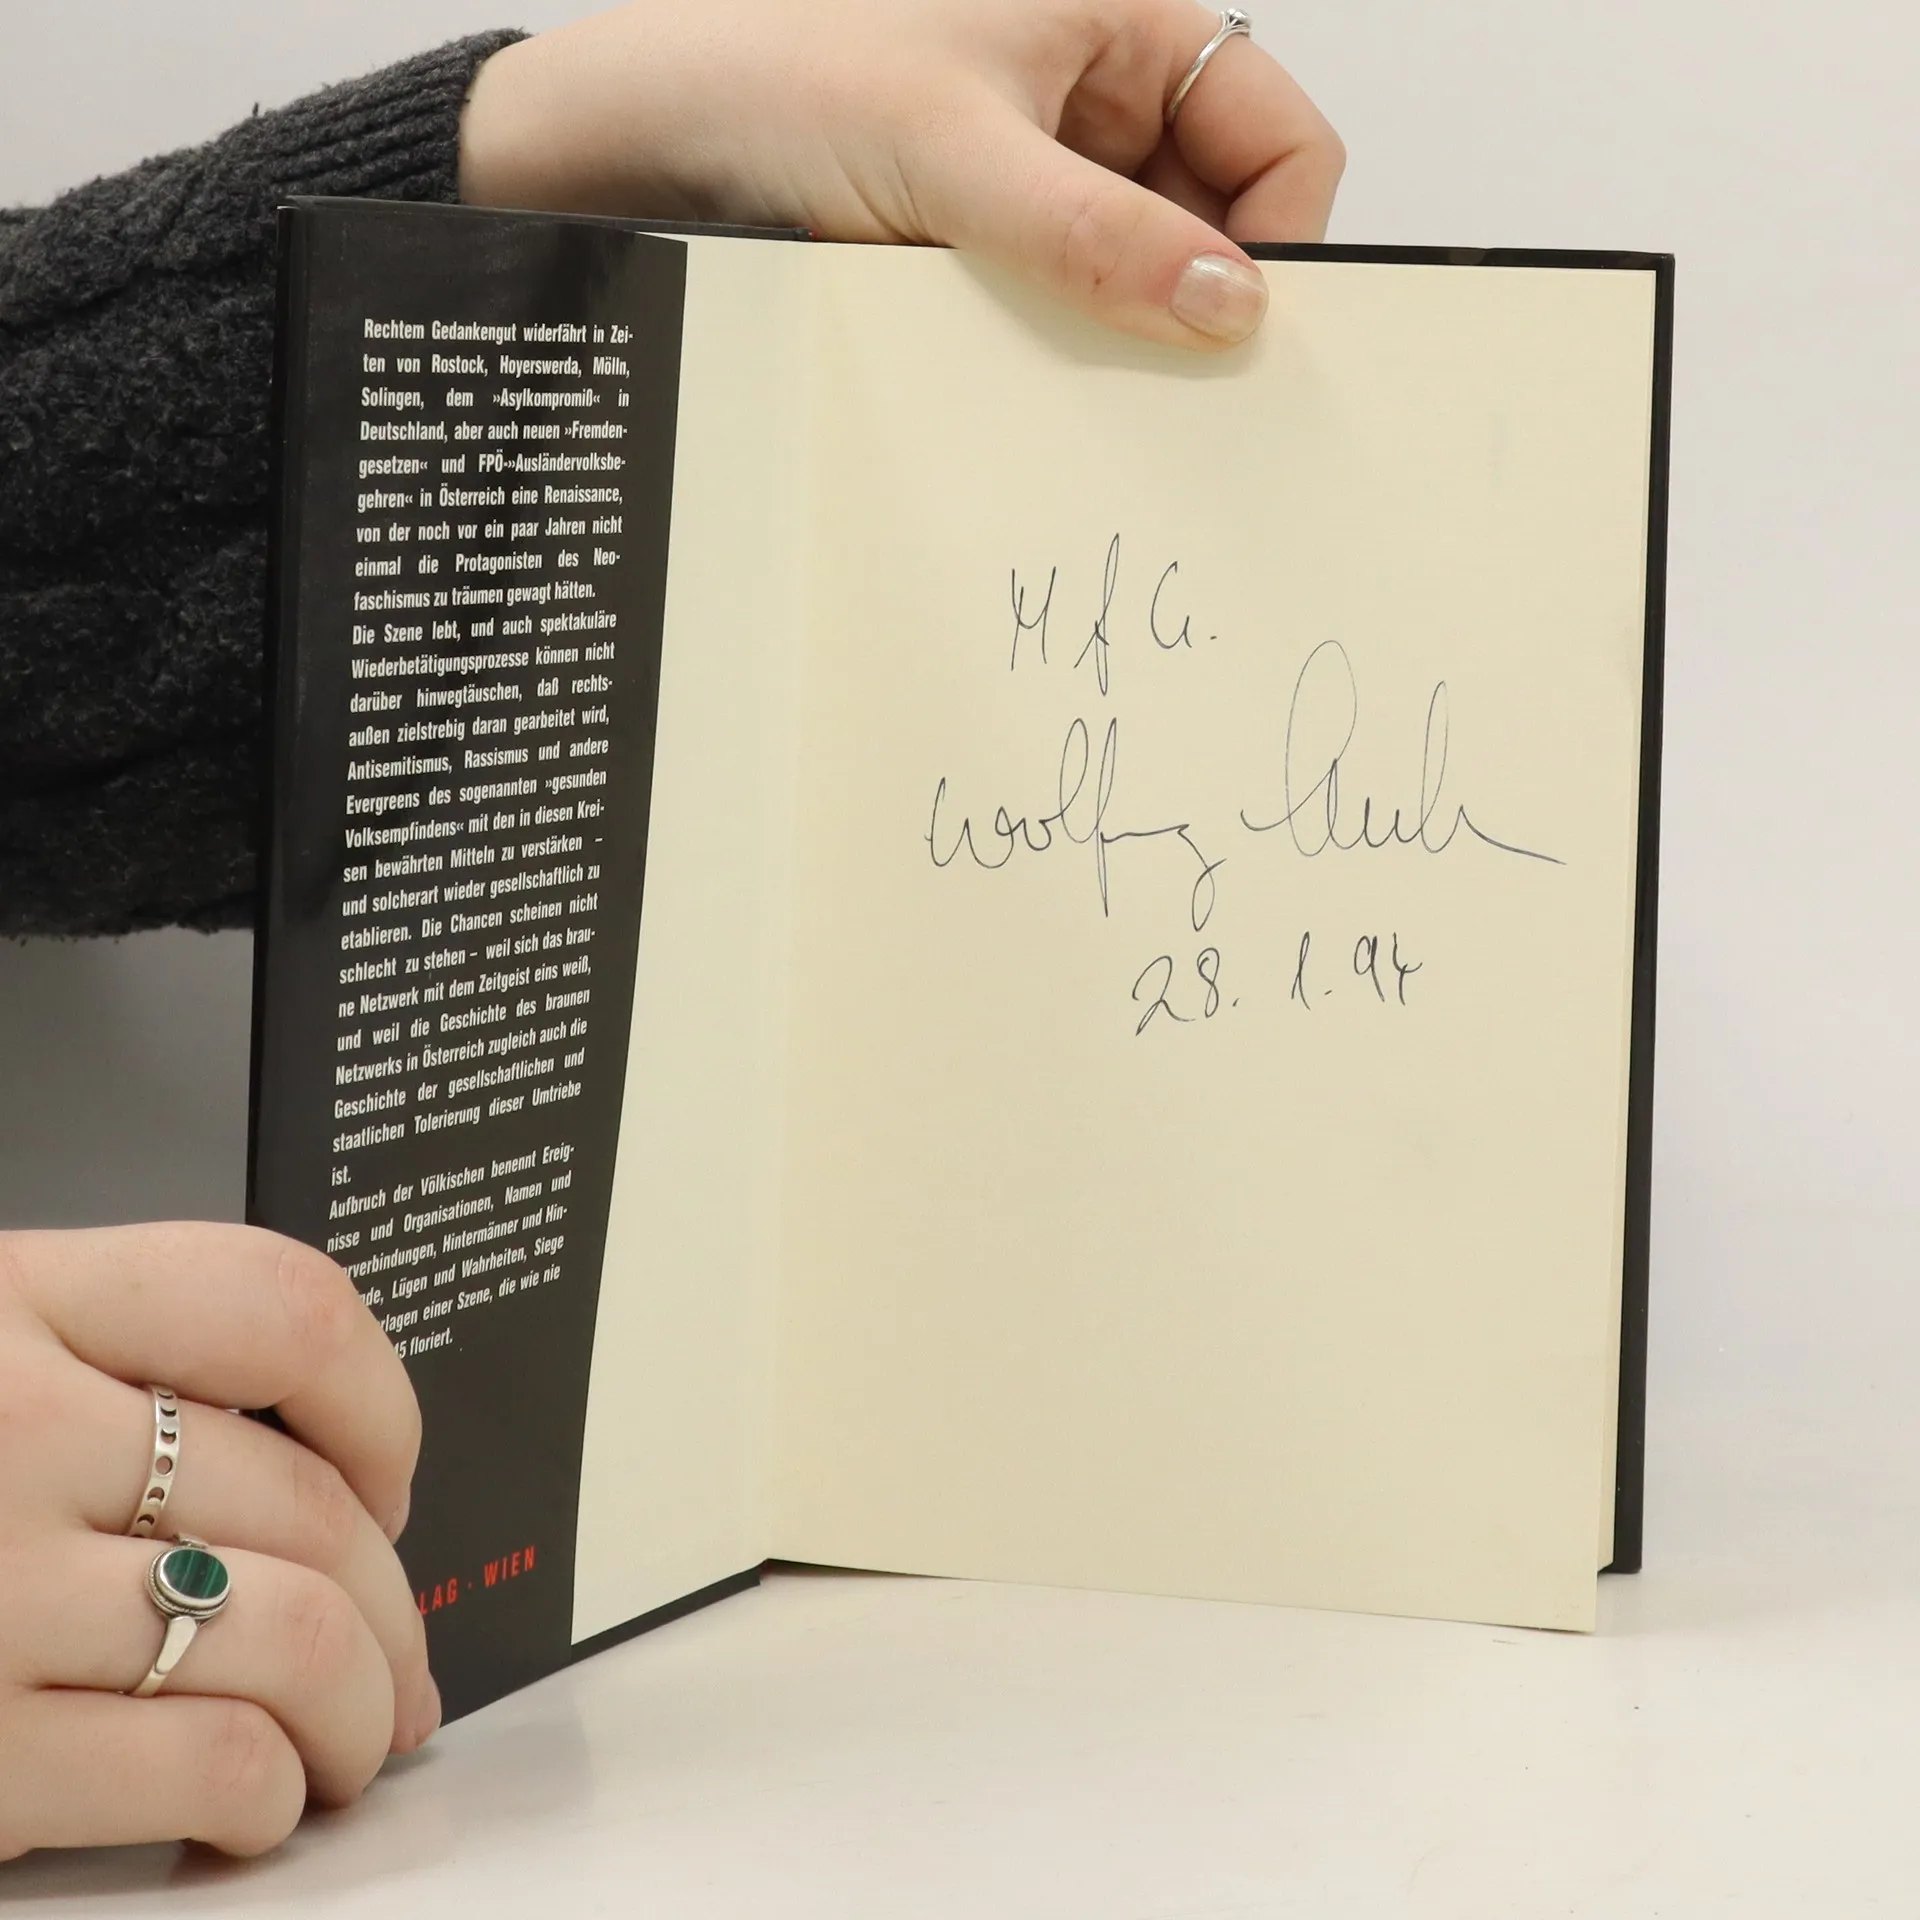 Rechtem Gedankengut widerfährt in Zei-
ten von Rostock, Hoyerswerda, Mölln,
Solingen, dem »Asylkompromiß« in
Deutschland, aber auch neuen »Fremden-
gesetzen« und FPÖ-»Ausländervolksbe-
gehren« in Österreich eine Renaissance,
von der noch vor ein paar Jahren nicht
einmal die Protagonisten des Neo-
faschismus zu träumen gewagt hätten.
Die Szene lebt, und auch spektakuläre
Wiederbetätigungsprozesse können nicht
darüber hinwegtäuschen, daß rechts-
außen zielstrebig daran gearbeitet wird,
Antisemitismus, Rassismus und andere
Evergreens des sogenannten »gesunden
Volksempfindens« mit den in diesen Krei-
sen bewährten Mitteln zu verstärken –
und solcherart wieder gesellschaftlich zu
etablieren. Die Chancen scheinen nicht
schlecht zu stehen – weil sich das brau-
ne Netzwerk mit dem Zeitgeist eins weiß,
und weil die Geschichte des braunen
Netzwerks in Österreich zugleich auch die
Geschichte der gesellschaftlichen und
staatlichen Tolerierung dieser Umtriebe
ist.
Aufbruch der Völkischen benennt Ereig-
nisse und Organisationen, Namen und
rverbindungen, Hintermänner und Hin-
nde, Lügen und Wahrheiten, Siege
rlagen einer Szene, die wie nie
45 floriert.
LAG · WIEN
M f G.
Wolfgang
28. 1. 94